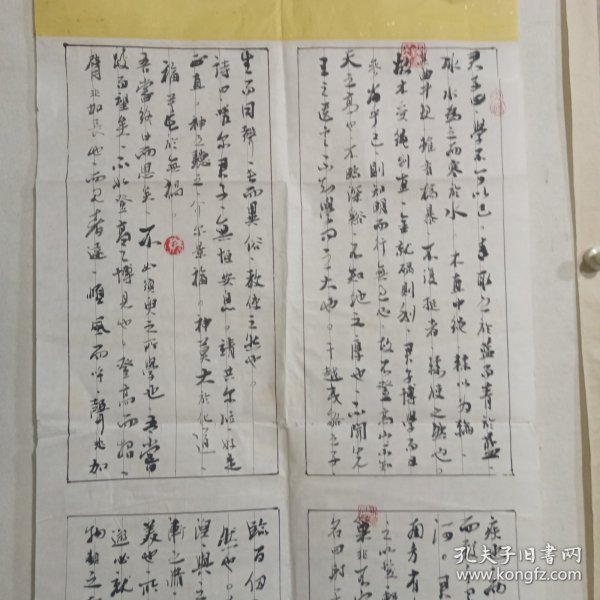 君子曰學不可以已青取之於藍而青於藍
冰水為之而寒於水木直中繩輮以為輪
其曲中規雖有槁暴不復挺者輮使之然也故
木受繩則直金就礪則利君子博學而日
參省乎己則知明而行無過也故不登高山不知
天之高也不臨深谿不知地之厚也不聞先
王之遺言不知學問之大也干越夷貉之子
生而同聲長而異俗教使之然也
詩曰嗟爾君子無恒安息靖共爾位好是
正直神之聽之介爾景福神莫大於化道
福莫長於無禍
吾嘗終日而思矣不如須臾之所學也吾嘗
跂而望矣不如登高之博見也登高而招
臂非加長也而見者遠順風而呼聲非加
疾也
而
河
南方有
之以
巢非不完
名曰射干
臨百仞
然也
漸之滫
美也所
遊必就
物類之
孔夫子旧书网
www.kongfz.com